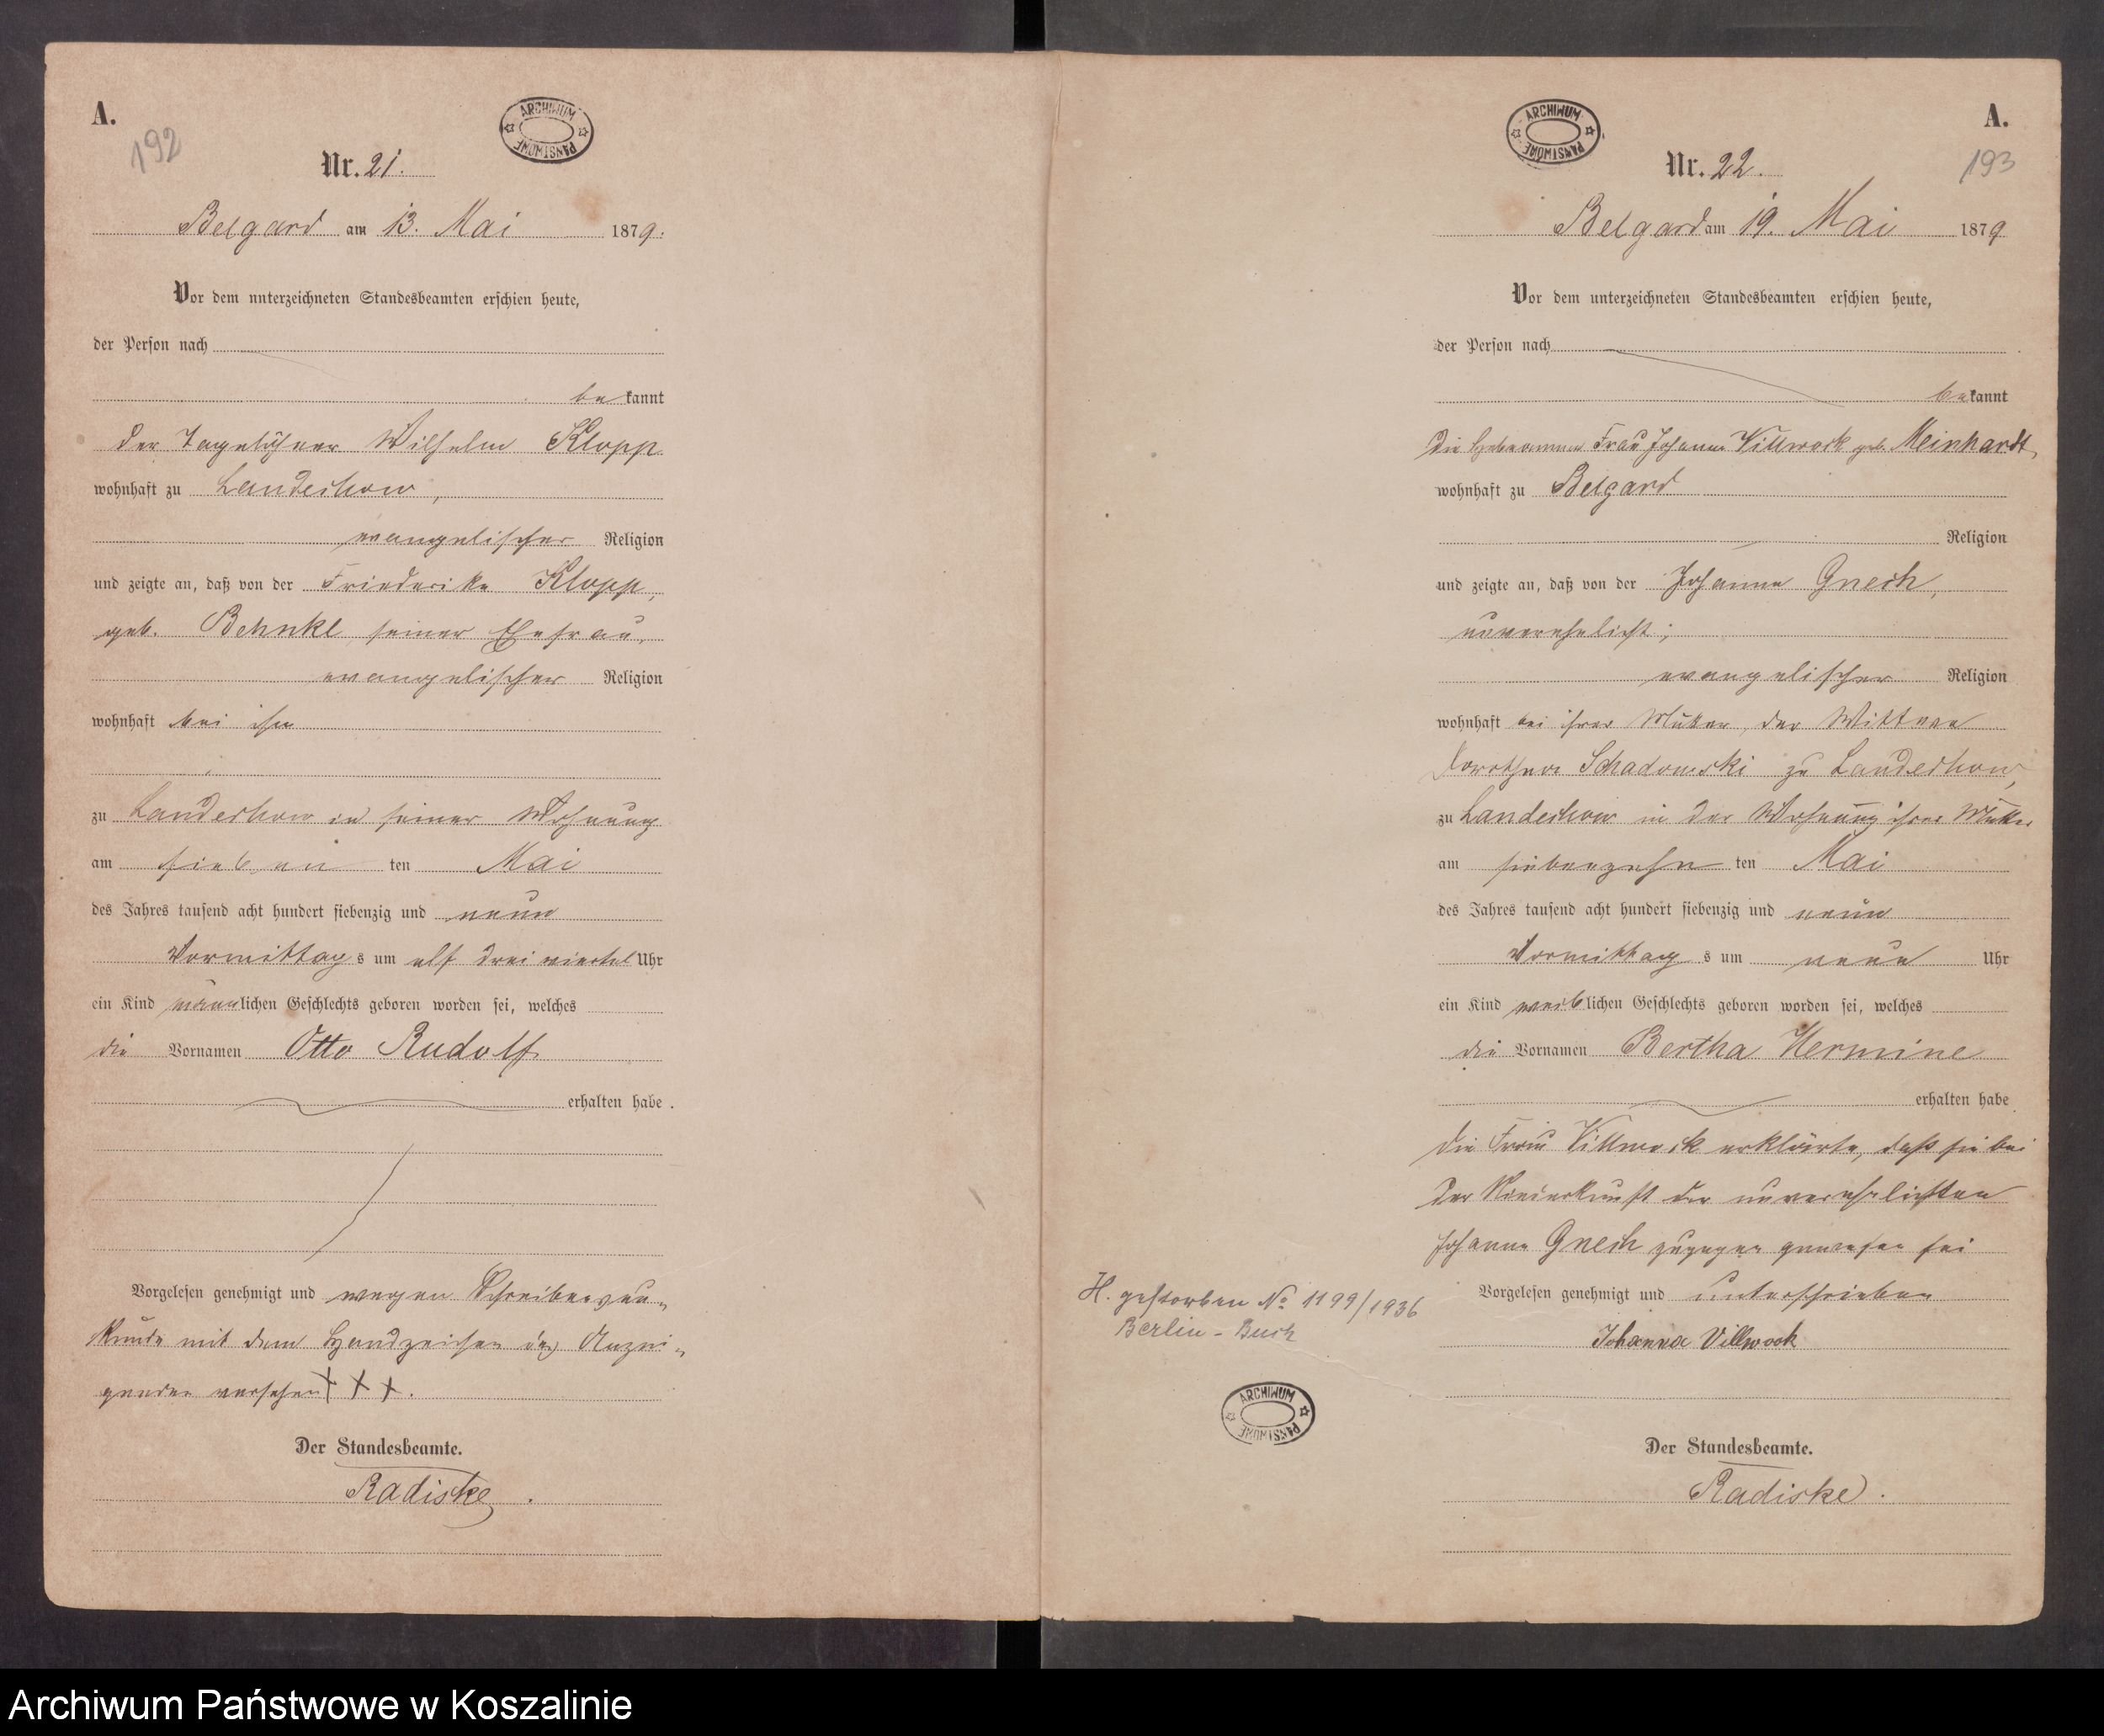 A.
192
ARCHIWUM PAŃSTWOWE
Nr. 21.
Belgard am 13. Mai 1879.
Vor dem unterzeichneten Standesbeamten erschien heute,
der Person nach
bekannt
der Tagelöhner Wilhelm Klopp
wohnhaft zu Landechow,
evangelischer Religion
und zeigte an, daß von der Friederike Klopp,
geb. Behnke, seiner Ehefrau,
evangelischer Religion
wohnhaft bei ihm
zu Landechow in seiner Wohnung
am sieben ten Mai
des Jahres tausend acht hundert siebenzig und neun
Vormittags um elf drei viertel Uhr
ein Kind männlichen Geschlechts geboren worden sei, welches
die Vornamen Otto Rudolf
erhalten habe.
Vorgelesen genehmigt und wegen Schreibensun-
kunde mit dem Handzeichen des Anzei-
genden versehen + + +.
Der Standesbeamte.
Radiske.
A.
193
ARCHIWUM PAŃSTWOWE
Nr. 22.
Belgard am 19. Mai 1879
Vor dem unterzeichneten Standesbeamten erschien heute,
der Person nach
bekannt
die Hebeamme Frau Johanna Villwock geb. Meinhardt,
wohnhaft zu Belgard
Religion
und zeigte an, daß von der Johanna Gnech,
unverehelicht;
evangelischer Religion
wohnhaft bei ihrer Mutter, der Wittwe
Dorothea Schadowski zu Landechow,
zu Landechow in der Wohnung ihrer Mutter
am siebenzehn ten Mai
des Jahres tausend acht hundert siebenzig und neun
Vormittags um neun Uhr
ein Kind weiblichen Geschlechts geboren worden sei, welches
die Vornamen Bertha Hermine
erhalten habe
Die Frau Villwock erklärte, daß sie bei
der Niederkunft der unverehelichten
Johanna Gnech zugegen gewesen sei
Vorgelesen genehmigt und unterschrieben
Johanna Villwock
Der Standesbeamte.
Radiske.
H. gestorben No 1199/1936
Berlin-Buch
ARCHIWUM PAŃSTWOWE
Archiwum Państwowe w Koszalinie